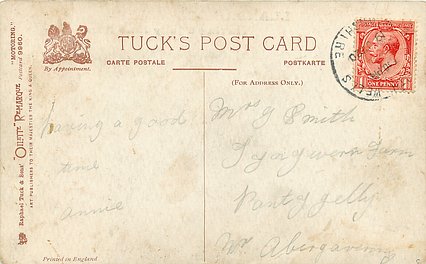 TUCK'S POST CARD
By Appointment.
CARTE POSTALE
POSTKARTE
(FOR ADDRESS ONLY.)
"MOTORING."
Postcard 9950.
Raphael Tuck & Sons' "OILETTE" REMARQUE
ART PUBLISHERS TO THEIR MAJESTIES THE KING & QUEEN.
Printed in England
having a good
time
Annie
Mrs G Smith
Farm
Pantygelly
Nr Abergavenny
WELLS
ONE PENNY
1 1